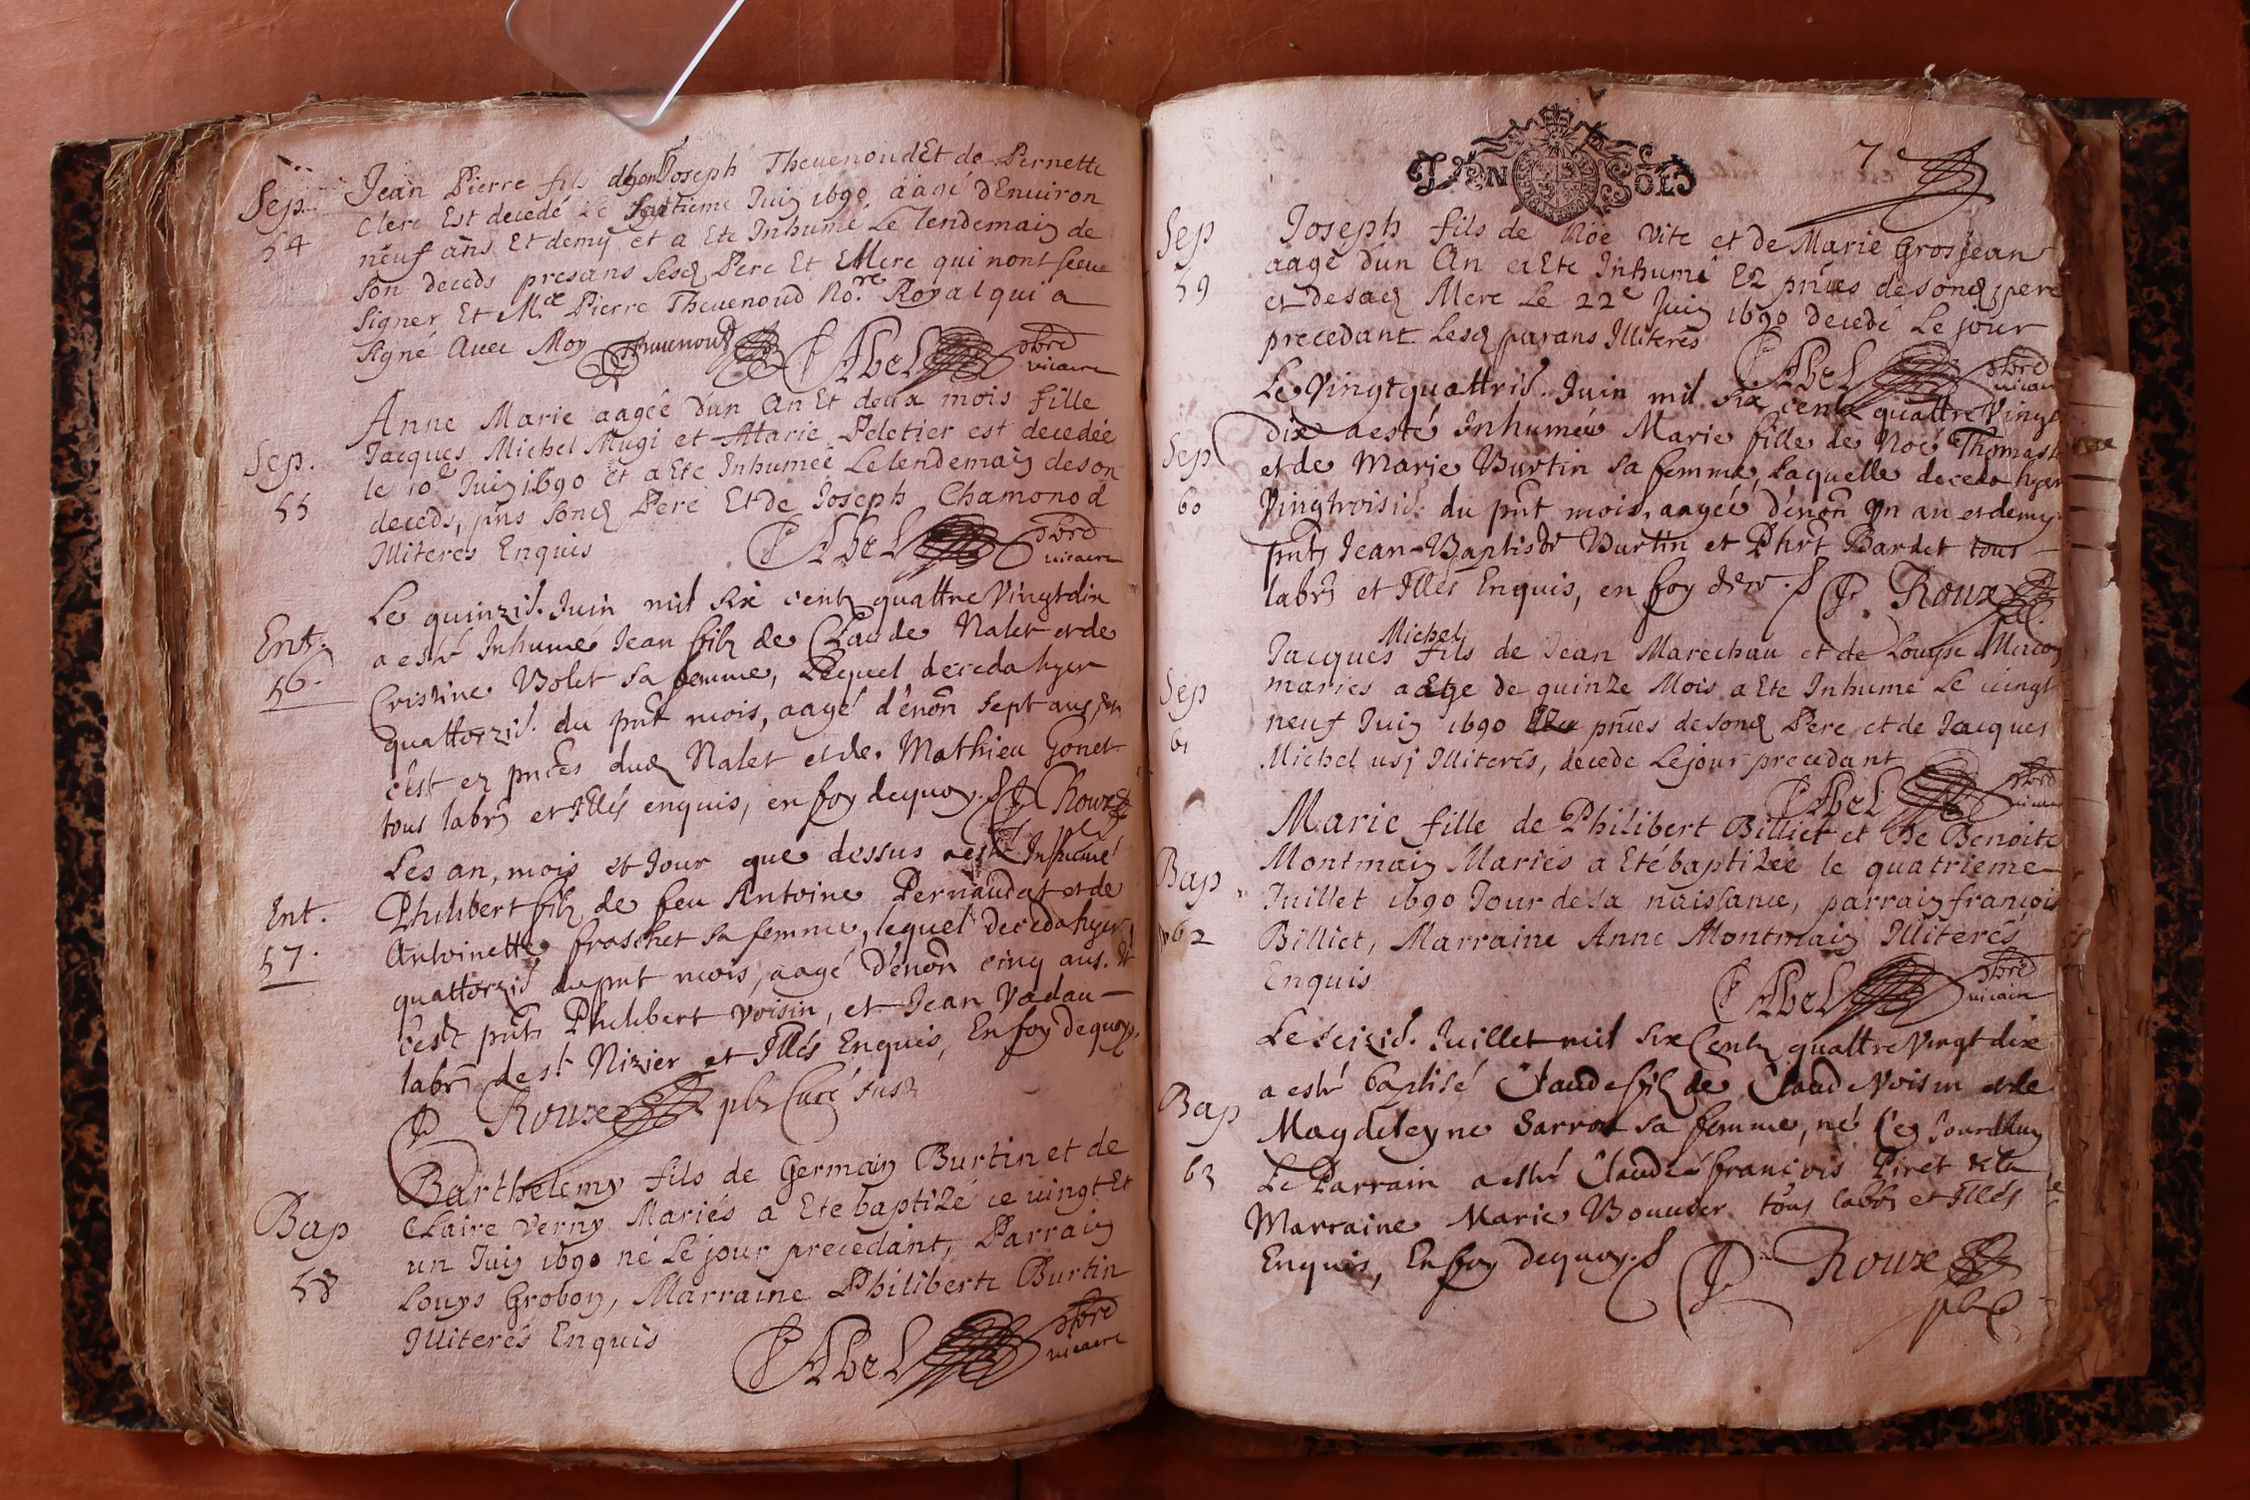 Jean Pierre fils Joseph Theuenoud Et de Pernette
Sep.
Clerc Est decedé Le Septieme Juin 1690 aagé dEnuiron
54
neuf ans Et demy et a Ete Inhumé Le lendemain de
son deceds presans Sesd Pere Et Mere qui nont sceu
signer Et Me Pierre Theuenoud No.re Royal qui a
signé Auec Moy Theuenoud P Abel pbre
vicaire
Anne Marie aagée dun An Et deux mois fille
Jacques Michel Mugi et Marie Peletier est decedée
Sep.
55
le 10e Juin 1690 et a Ete Inhumée Le lendemain de son
deceds, pns Sond Pere Et de Joseph Chamonod
Illiterés Enquis P Abel pbre
vicaire
Le quinzie. Juin mil six centz quattre Vingt dix
Ent.
56.
a esté Inhumé Jean filz de Claude Nalet et de
Cristine Bolet sa femme, Lequel deceda hyer
quattorzie. du pnt mois, aagé d'enon sept ans,
c'est en pnces dud Nalet et de Mathieu Gonet
tous labrs et Illés enquis, en foy dequoy. P Roux
Les an, mois et Jour que dessus a esté Inhumé
Ent.
57.
Philibert filz de feu Antoine Pernaudat et de
Antoinette fraschet sa femme, lequel deceda hyer
quattorzie du pnt mois, aagé d'enon cinq ans. Et
c'est pnts Philibert Voisin, et Jean Vadau
labrs de St Nizier et Illés Enquis, En foy dequoy.
P Roux pbr Curé susd
Barthelemy fils de Germain Burtin et de
Bap
58
Claire Verny Mariés a Ete baptizé ce uingt Et
un Juin 1690 né Le jour precedant, Parrain
Louys Grobon, Marraine Philiberte Burtin
Illiterés Enquis P Abel pbre
vicaire
UN SOL
7e
Sep
59
Joseph fils de Noe Vite et de Marie Grosjean
aagé dun An a Ete Inhumé En pnces de sond pere
et de sad Mere Le 22e Juin 1690 decedé Le jour
precedant Lesd parans Illiterés P Abel pbre
vicaire
Le Vingtquattrie. Juin mil six centz quattre Vingt
Sep
60
dix a esté Inhumée Marie fille de Noé Thomas
et de Marie Burtin sa femme, Laquelle deceda hyer
Vingtroisie. du pnt mois, aagée d'enon Vn an et demy.
pnts Jean-Baptiste Burtin et Phirt Bardet tous
labrs et Illés Enquis, en foy P. Roux
Sep
61
Jacques Michel fils de Jean Marechau et de Louyse
mariés aage de quinze Mois a Ete Inhumé Le uingt
neuf Juin 1690 pnces de sond Pere et de Jacques
Michel Illiterés, decede Le jour precedant
P Abel pbre
vicaire
Bap
62
Marie fille de Philibert Billiet et De Benoite
Montmain Mariés a Eté baptizée le quatrieme
Juillet 1690 Jour de sa naissance, parrain françois
Billiet, Marraine Anne Montmain Illiterés
Enquis P Abel pbre
vicaire
Le seizie. Juillet mil six Centz quattre Vingt dix
Bap
63
a esté baptisé Claude filz de Claude Voisin et de
Magdeleyne Sarrot sa femme, né Cejourdhuy
Le Parrain a esté Claude françois Piret et la
Marraine Marie Bouuier tous labrs et Illés
Enquis, En foy dequoy. P Roux
pbr